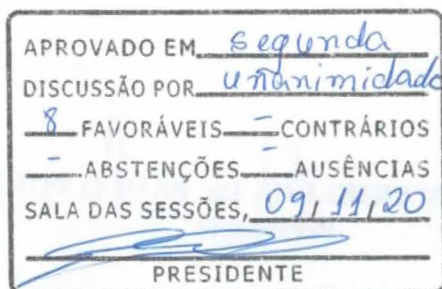 APROVADO EM segunda
DISCUSSÃO POR unanimidade
8 FAVORÁVEIS - CONTRÁRIOS
- ABSTENÇÕES AUSÊNCIAS
SALA DAS SESSÕES, 09/11/20
PRESIDENTE